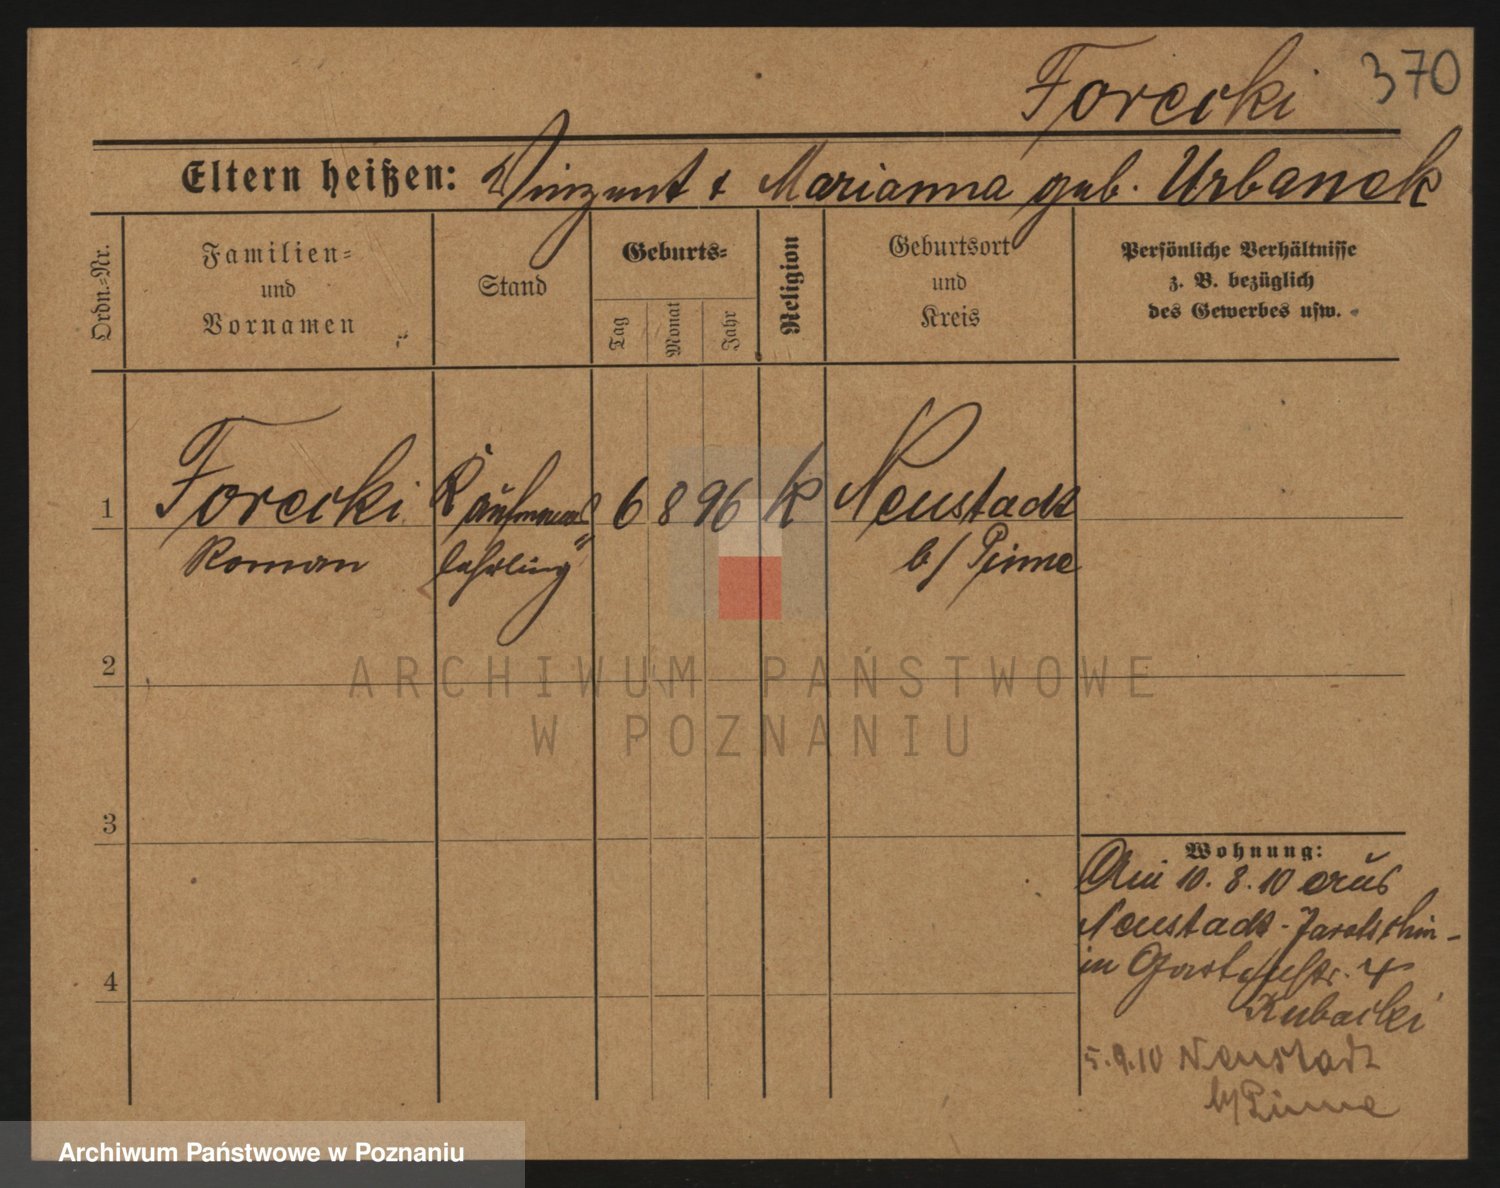 370
Forecki
Eltern heißen: Vinzent & Marianna geb. Urbanek
Ordn.=Nr.
Familien=
und
Vornamen
Stand
Geburts=
Tag
Monat
Jahr
Religion
Geburtsort
und
Kreis
Persönliche Verhältnisse
z. B. bezüglich
des Gewerbes usw.
1 Forecki Kaufmanns 6 8 96 k Neustadt
Roman lehrling b/ Pinne
2
ARCHIWUM PAŃSTWOWE
W POZNANIU
3
Wohnung:
Am 10. 8. 10 aus
Neustadt - Jarotschin -
in 4
4
Kubacki
5.9.10 Neustadt
b/ Pinne
Archiwum Państwowe w Poznaniu